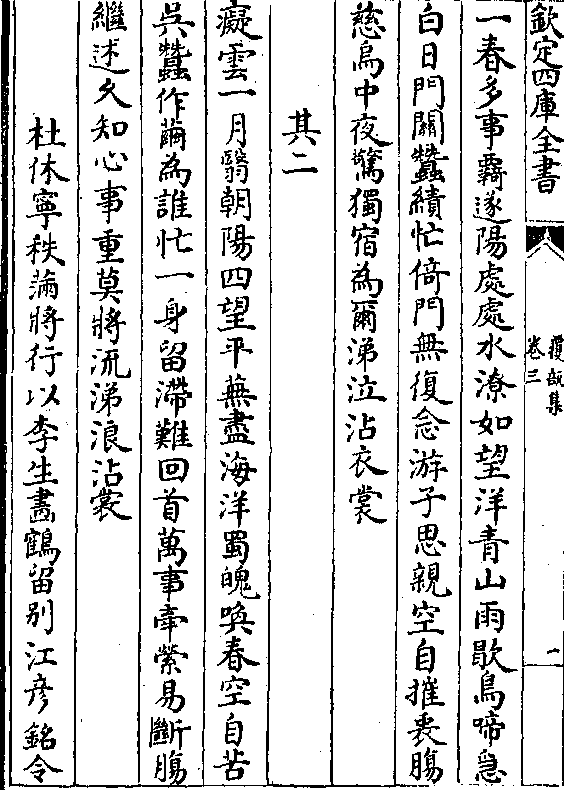 欽定四庫全書
卷三
一春多事霸遂陽處處水潦如望洋青山雨歇鳥啼急
白日門關蠶績忙倚門無復念游子思親空自摧喪腸
慈烏中夜驚獨宿為爾涕泣沾衣裳
其二
癡雲一月翳朝陽四望平蕪盡海洋蜀魄喚春空自苦
吳蠶作繭為誰忙一身留滯難回首萬事牽縈易斷腸
繼述久知心事重莫將流涕浪沾裳
杜休寧秩滿將行以李生畵鶴留别江彦銘令